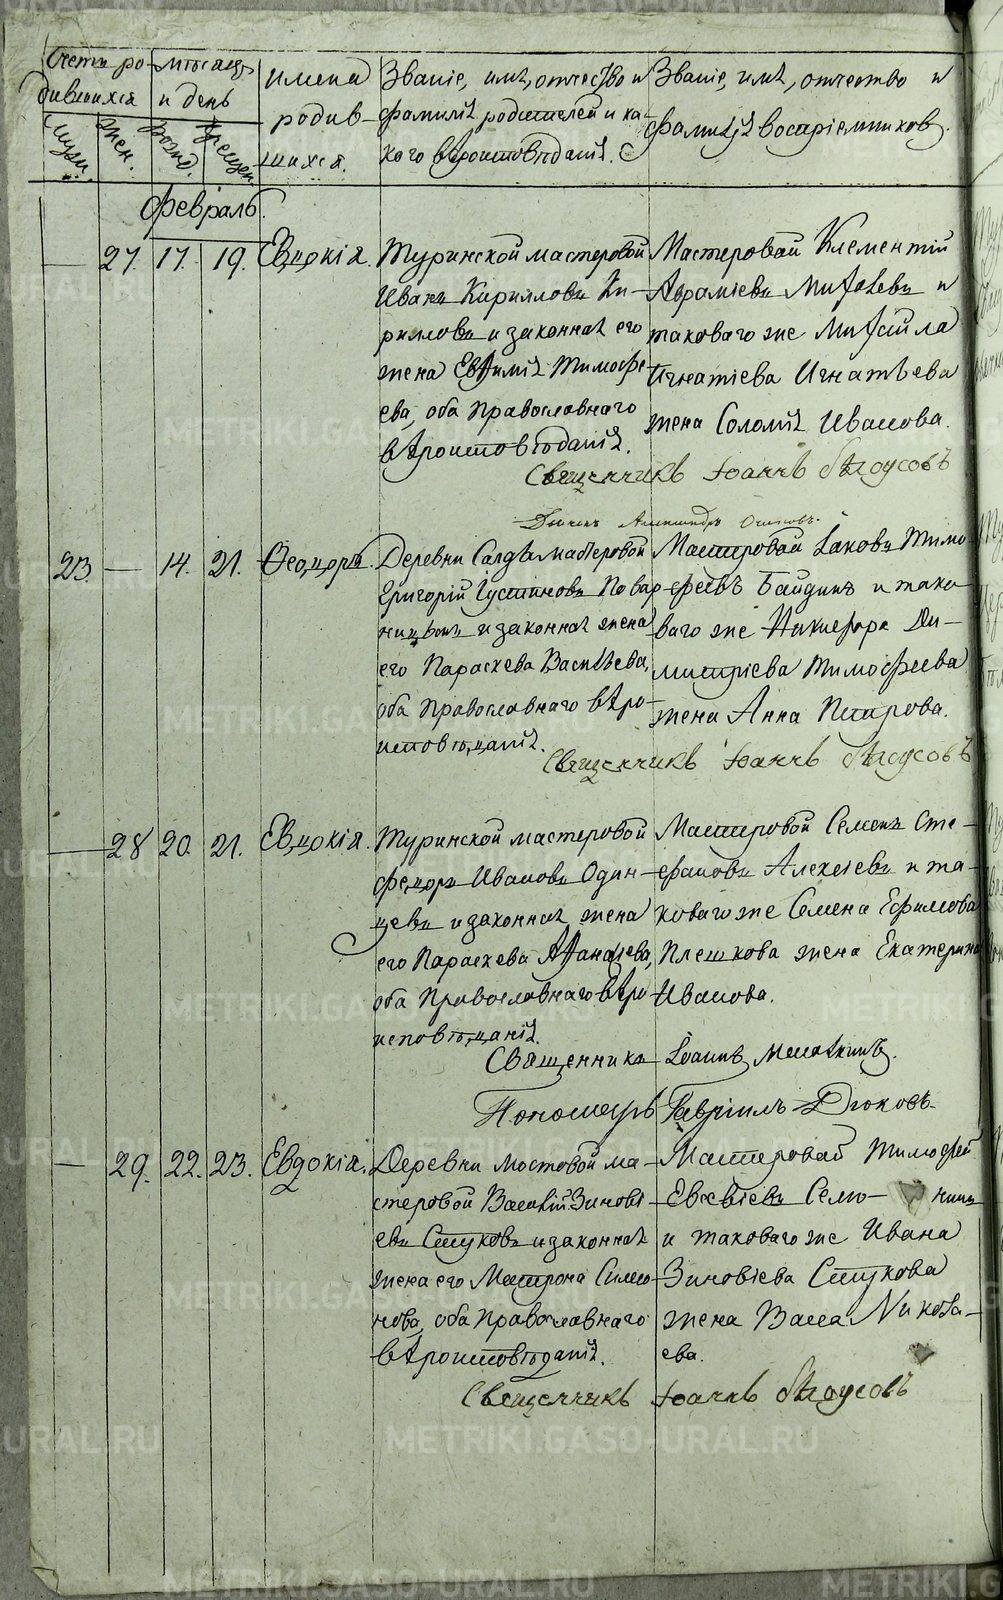 Счетъ ро-
дившихся
Муж.
Жен.
Мѣсяцъ
и день
рожд.
крещен.
Имена
родив-
шихся.
Званіе, имя, отчество и
фамилія родителей и ка-
кого вѣроисповѣданія.
Званіе, имя, отчество и
фамилія воспріемниковъ.
Февраль.
27. 17. 19. Евдокія.
Туринской мастеровой
Иванъ Кирилловъ Ки-
рилловъ и законная его
жена Евѳимія Тимофе-
ева, оба Православнаго
вѣроисповѣданія.
Мастеровой Клементій
Авраміевъ
и
таковаго же Михаила
Игнатіева Игнатьева
жена Соломія Иванова.
Священникъ Іоаннъ Бѣлоусовъ
23. 14. 21. Ѳеодоръ.
Деревни Салды мастеровой
Григорій Густиновъ Повар-
ницынъ и законная жена
его Параскева Васильева,
оба Православнаго вѣро-
исповѣданія.
Мастеровой Іаковъ Тимо-
феевъ Байдинъ и тако-
ваго же Никифора Ди-
митріева Тимофеева
жена Анна Петрова.
Священникъ Іоаннъ Бѣлоусовъ
28 20. 21. Евдокія.
Туринской мастеровой
Феодоръ Ивановъ Один-
цевъ и законная жена
его Параскева Аѳанасіева,
оба Православнаго вѣро-
исповѣданія.
Мастеровой Семенъ Сте-
фановъ Алексіевъ и та-
коваго же Семена Ефимова
Плешкова жена Екатерина
Иванова.
Священникъ Іоаннъ
Пономарь Гавріилъ Дюковъ.
29. 22. 23. Евдокія.
Деревни Мостовой ма-
стеровой Василій Зинові-
евъ Стуковъ и законная
жена его Матрона Симо-
нова, оба Православнаго
вѣроисповѣданія.
Мастеровой Тимофей
Евсевіевъ
и таковаго же Ивана
Зиновіева Стукова
жена Васса Никола-
ева.
Священникъ Іоаннъ Бѣлоусовъ
METRIKI.GASO-URAL.RU